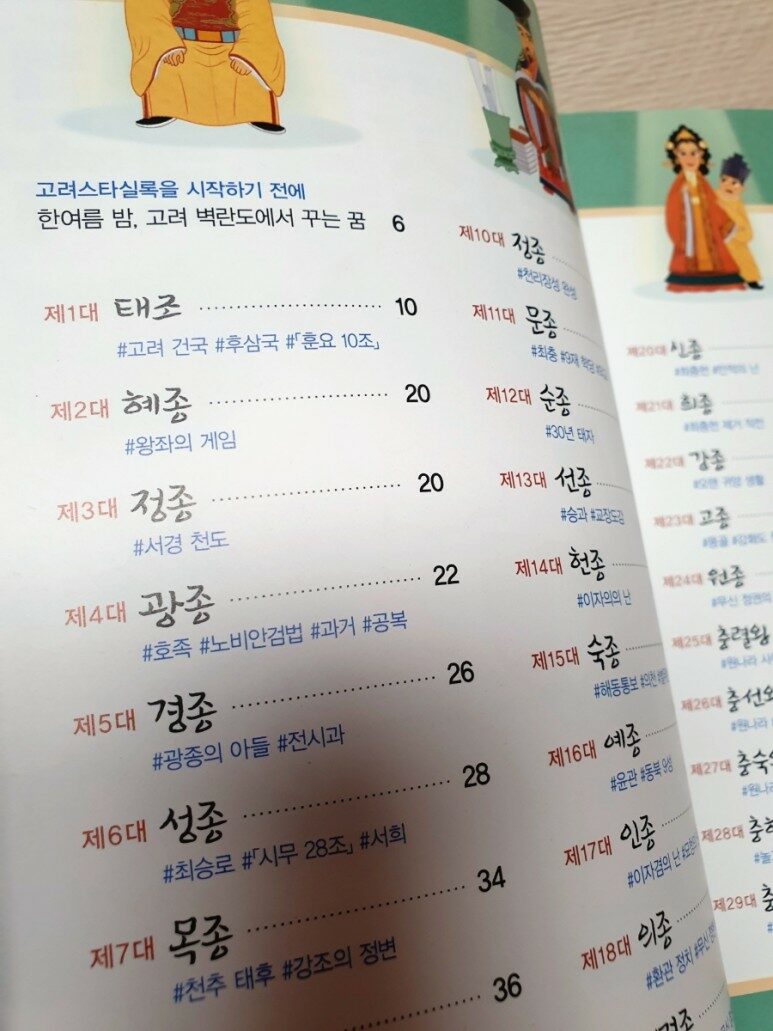 고려스타실록을 시작하기 전에
한여름 밤, 고려 벽란도에서 꾸는 꿈 6
제1대 태조 10
#고려 건국 #후삼국 #「훈요 10조」
제2대 혜종 20
#왕좌의 게임
제3대 정종 20
#서경 천도
제4대 광종 22
#호족 #노비안검법 #과거 #공복
제5대 경종 26
#광종의 아들 #전시과
제6대 성종 28
#최승로 #「시무 28조」 #서희
제7대 목종 34
#천추 태후 #강조의 정변
36
제10대 정종
#천리장성 완성
제11대 문종
#최충 #9재 학당
제12대 순종
#30년 태자
제13대 선종
#승과 #교장도감
제14대 헌종
#이자의의 난
제15대 숙종
#해동통보 #의천
제16대 예종
#윤관 #동북 9성
제17대 인종
#이자겸의 난
제18대 의종
#환관 정치 #무신
제20대 신종
#최충헌 #만적의 난
제21대 희종
#최충헌 제거 작전
제22대 강종
#오랜 귀양 생활
제23대 고종
#몽골 #강화도
제24대 원종
#무신 정권의
제25대 충렬왕
#원나라
제26대 충선
#원나라
제27대 충숙
#원나라
제28대 충
제29대 충